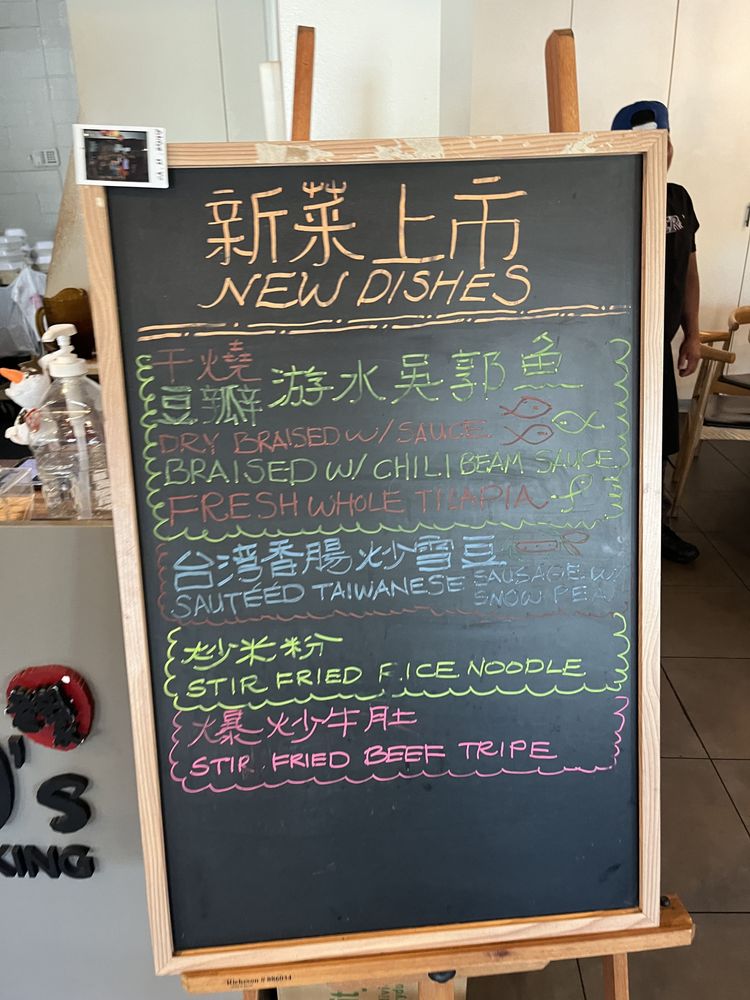 新菜上市
NEW DISHES
干燒
豆瓣 游水吳郭魚
DRY BRAISED W/ SAUCE
BRAISED W/ CHILI BEAM SAUCE
FRESH WHOLE TILAPIA
台湾香腸炒雪豆
SAUTÉED TAIWANESE SAUSAGE W/
SNOW PEA
炒米粉
STIR FRIED RICE NOODLE
爆炒牛肚
STIR FRIED BEEF TRIPE
's
KING